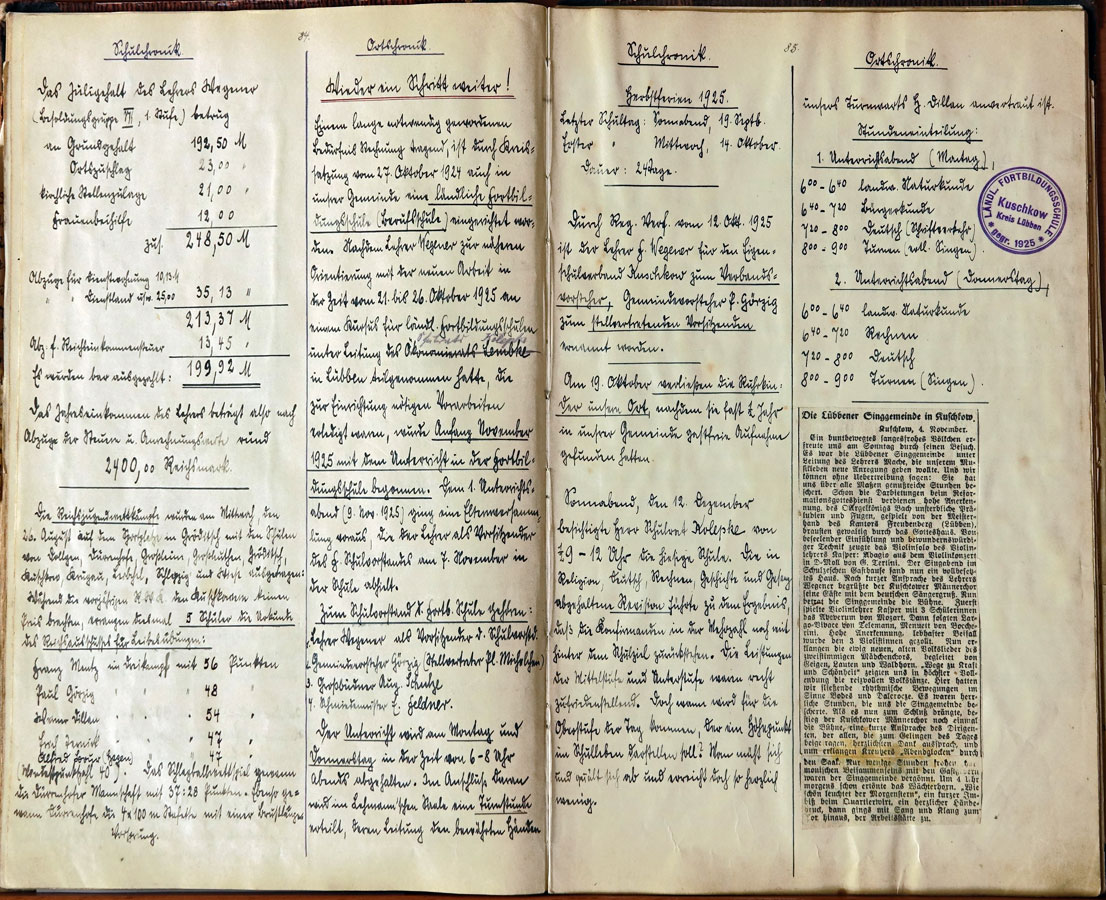 84.
Schulchronik.
Das Juligehalt des Lehrers Wegener
Besoldungsgruppe VII, 1. Stufe) betrug
an Grundgehalt 192,50 M
Ortszuschlag 23,00 "
kirchliche Stellenzulage 21,00 "
Frauenbeihilfe 12,00
zus. 248,50 M
Abzüge für Dienstwohnung 10,13 M
" " Dienstland usw. 25,00 35,13 "
213,37 M
Abz. f. Reichseinkommensteuer 13,45 "
Es wurden bar ausgezahlt: 199,92 M
Das Jahreseinkommen des Lehrers beträgt also nach
Abzüge der Steuern u. Anrechnungswerte rund
2400,00 Reichsmark.
Die Reichsjugendwettkämpfe wurden am Mittwoch, den
26. August auf dem Sportplatz in Gröditsch mit den Schulen
von Dollgen, Dürrenhofe, Gröditsch,
Krugau, Leibchel, und ausgetragen.
Während die vorjährigen den Kuschkowern keinen
Preis brachten, errangen diesmal 5 Schüler die Urkunde
des Reichsausschusses für Leibesübungen:
Franz Mentz im Dreikampf mit 56 Punkten
Paul Görzig " " " 48
Werner Dillan " " " 54 "
" " " 47 "
Alfred " " " 47
Mindestpunktzahl 40). Das Schlagballwettspiel gewann
die Dürrenhofer Mannschaft mit 37:28 Punkten. Ebenso ge-
wann Dürrenhofe die 4x100 m Stafette mit einer Brustlänge
Vorsprung.
Ortschronik.
Wieder ein Schritt weiter!
Einem lange notwendig gewordenen
Bedürfnis Rechnung tragend, ist durch Kreis-
satzung vom 27. Oktober 1924 auch in
unsrer Gemeinde eine ländliche Fortbil-
dungsschule (Berufsschule) eingerichtet wor-
den. Nachdem Lehrer Wegener zur nähern
Orientierung mit der neuen Arbeit in
der Zeit vom 21. bis 26. Oktober 1925 an
einem Kursus für ländl. Fortbildungsschulen
Schulrats Kolepke
unter Leitung des Ökonomierats Lembke
in Lübben teilgenommen hatte, die
zur Einrichtung nötigen Vorarbeiten
erledigt waren, wurde Anfang November
1925 mit dem Unterricht in der Fortbil-
dungsschule begonnen. Dem 1. Unterrichts-
abend (9. Nov. 1925) ging eine Elternversamm-
lung voraus, die der Lehrer als Vorsitzender
des H. Schulvorstands am 7. November in
der Schule abhielt.
Zum Schulvorstand d. Fortb. Schule gehören:
1. Lehrer Wegener als Vorsitzender d. Schulvorstd.
2. Gemeindevorsteher Görzig (Stellvertreter Pl. Michelchen)
3. Großbüdner Aug. Schulze
4. Schmiedemeister E. Geldner.
Der Unterricht wird am Montag und
Donnerstag in der Zeit von 6-8 Uhr
abends abgehalten. Im Anschluß daran
wird im Lehmann'schen Saale eine Turnstunde
erteilt, deren Leitung den bewährten Händen
85.
Schulchronik.
Herbstferien 1925.
Letzter Schultag: Sonnabend, 19. Septb.
Erster " Mittwoch, 14. Oktober.
Dauer: 24 Tage.
Durch Reg. Verf. vom 12. Okt. 1925
ist der Lehrer H. Wegener für den Eigen-
schulverband Kuschkow zum Verbands-
vorsteher, Gemeindevorsteher P. Görzig
zum stellvertretenden Vorsitzenden
ernannt worden.
Am 19. Oktober verließen die Ruhrkin-
der unsern Ort, nachdem sie fast ½ Jahr
in unsrer Gemeinde gastfreie Aufnahme
gefunden hatten.
Sonnabend, den 12. Dezember
besichtigte Herr Schulrat Kolepke von
½9 - 12 Uhr die hiesige Schule. Die in
Religion, Deutsch, Rechnen, Geschichte und Gesang
abgehaltene Revision führte zu dem Ergebnis,
daß die Konfirmanden in der Mehrzahl noch weit
hinter dem Schulziel zurückstehen. Die Leistungen
der Mittelstufe und Unterstufe waren recht
zufriedenstellend. Doch wann wird für die
Oberstufe der Tag kommen, der ein Höhepunkt
im Schulleben darstellen soll? Man müht sich
und quält sich ab und erreicht doch so herzlich
wenig.
Ortschronik.
unsers Turnwarts H. Dillan anvertraut ist.
Stundeneinteilung:
1. Unterrichtsabend (Montag),
6⁰⁰ - 6⁴⁰ landw. Naturkunde
6⁴⁰ - 7²⁰ Bürgerkunde
7²⁰ - 8⁰⁰ Deutsch (Schriftverkehr)
8⁰⁰ - 9⁰⁰ Turnen (evtl. Singen).
2. Unterrichtsabend (Donnerstag),
6⁰⁰ - 6⁴⁰ landw. Naturkunde
6⁴⁰ - 7²⁰ Rechnen
7²⁰ - 8⁰⁰ Deutsch
8⁰⁰ - 9⁰⁰ Turnen (Singen).
LÄNDL. FORTBILDUNGSSCHULE
Kuschkow
Kreis Lübben
* gegr. 1925 *
Die Lübbener Singgemeinde in Kuschkow.
Kuschkow, 4. November.
Ein buntbewegtes sangesfrohes Völkchen er-
freute uns am Sonntag durch seinen Besuch.
Es war die Lübbener Singgemeinde unter
Leitung des Lehrers Mache, die unserem Mu-
sikleben neue Anregung geben wollte. Und wir
können ohne Uebertreibung sagen: Sie hat
uns über alle Maßen genußreiche Stunden be-
schert. Schon die Darbietungen beim Refor-
mationsgottesdienst verdienen hohe Anerken-
nung, des Orgelkönigs Bach unsterbliche Prä-
ludien und Fugen, gespielt von der Meister-
hand des Kantors Freudenberg (Lübben),
brausten gewaltig durch das Gotteshaus. Von
beseelender Einfühlung und bewundernswürdi-
ger Technik zeugte das Violinsolo des Violin-
lehrers Kasper: Adagio aus dem Violinkonzert
in D-Moll von G. Tartini. Der Singabend im
Schulzeschen Gasthause fand nun ein vollbesetz-
tes Haus. Nach kurzer Ansprache des Lehrers
Wegener begrüßte der Kuschkower Männerchor
seine Gäste mit dem deutschen Sängergruß. Nun
betrat die Singgemeinde die Bühne. Zuerst
spielte Violinlehrer Kasper mit 3 Schülerinnen
das Ave verum von Mozart. Dann folgten Lar-
go-Vivace von Telemann, Menuett von Bocche-
rini. Hohe Anerkennung, lebhafter Beifall
wurde den 3 Violinisten gezollt. Nun er-
klangen die ewig neuen, alten Volkslieder des
zweistimmigen Mädchenchors, begleitet von
Geigen, Lauten und Waldhorn. „Wege zu Kraft
und Schönheit" zeigten uns in höchster Voll-
endung die reizvollen Volkstänze. Hier hatten
wir fließende rhythmische Bewegungen im
Sinne Bodes und Dalcroze. Es waren herr-
liche Stunden, die uns die Singgemeinde be-
scherte. Als es nun zum Schluß drängte, be-
stieg der Kuschkower Männerchor noch einmal
die Bühne, eine kurze Ansprache des Dirigen-
ten, der allen, die zum Gelingen des Tages
beigetragen, herzlichsten Dank aussprach, und
nun erklangen Kreutzers „Abendglocken" durch
den Saal. Nur wenige Stunden frohen har-
monischen Beisammenseins mit den Gastgebern
waren der Singgemeinde vergönnt. Um 4 Uhr
morgens schon ertönte das Wächterhorn. „Wie
schön leuchtet der Morgenstern", ein kurzer Im-
biß beim Quartierwirt, ein herzlicher Hände-
druck, dann gings mit Sang und Klang zum
Tor hinaus, der Arbeitsstätte zu.